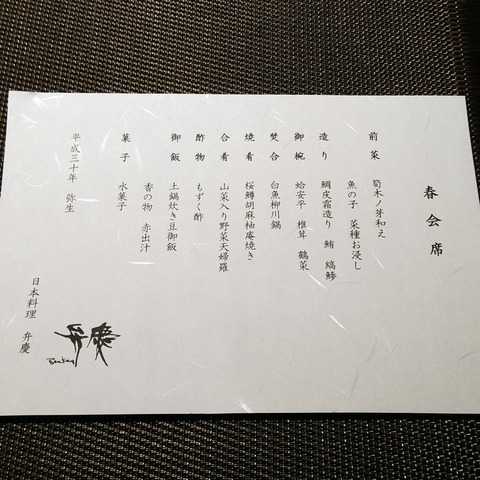 春会席
前菜 筍木ノ芽和え
魚の子 菜種お浸し
造り 鯛皮霜造り 鮪 縞鯵
御椀 蛤安平 椎茸 鶴菜
焚合 白魚柳川鍋
焼肴 桜鱒胡麻柚庵焼き
合肴 山菜入り野菜天婦羅
酢物 もずく酢
御飯 土鍋炊き豆御飯
香の物 赤出汁
菓子 水菓子
平成三十年 弥生
日本料理 弁慶
弁慶
Benkay